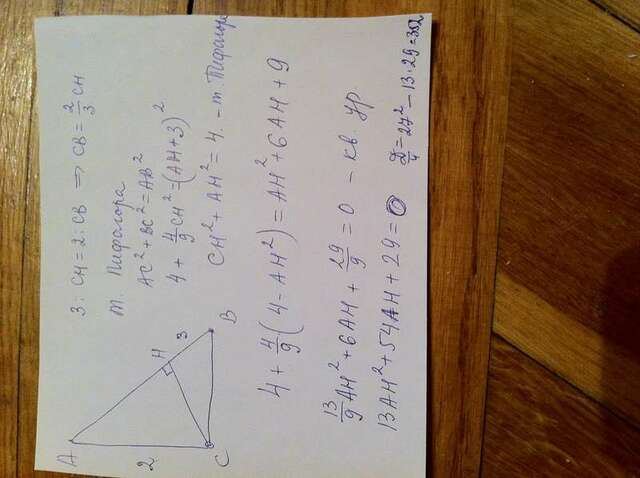 3 : CH = 2 : CB ⇒ CB = 2/3 CH
т. Пифагора
AC² + BC² = AB²
4 + 4/9 CH² = (AH + 3)²
CH² + AH² = 4 – т. Пифагора
A
2
H
3
C
B
4 + 4/9 (4 – AH²) = AH² + 6AH + 9
13/9 AH² + 6AH + 29/9 = 0 – кв. ур
13AH² + 54AH + 29 = 0
D/4 = 27² – 13·29 = 352